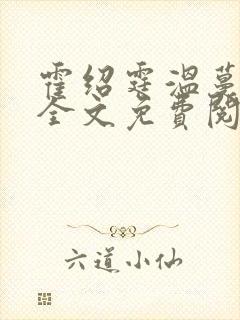 霍绍霆温蔓
全文免费阅
六道小仙